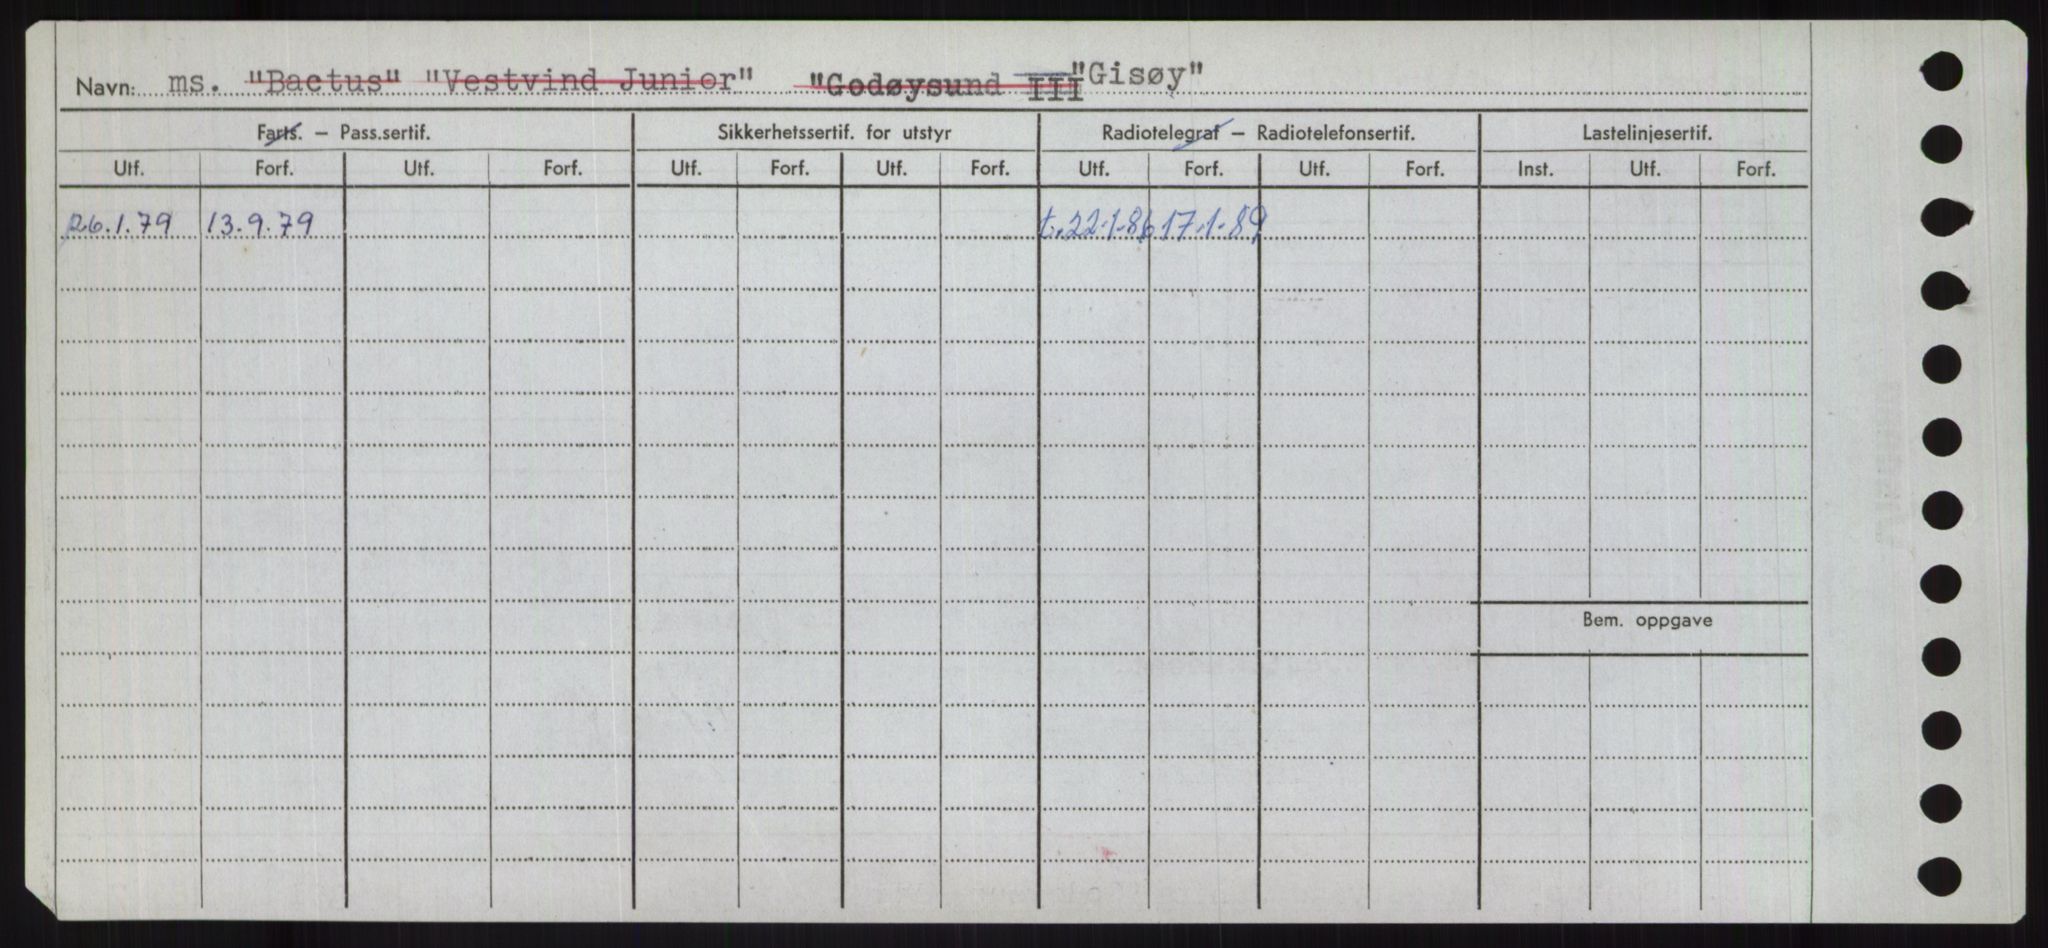 Navn: ms. "Bactus" "Vestvind Junior" "Godøysund III "Gisøy"
Farts. – Pass.sertif. Sikkerhetssertif. for utstyr Radiotelegraf – Radiotelefonsertif. Lastelinjesertif.
Utf. Forf. Utf. Forf. Utf. Forf. Utf. Forf. Utf. Forf. Utf. Forf. Inst. Utf. Forf.
26.1.79 13.9.79 t.22.1.86 17.1.89
Bem. oppgave